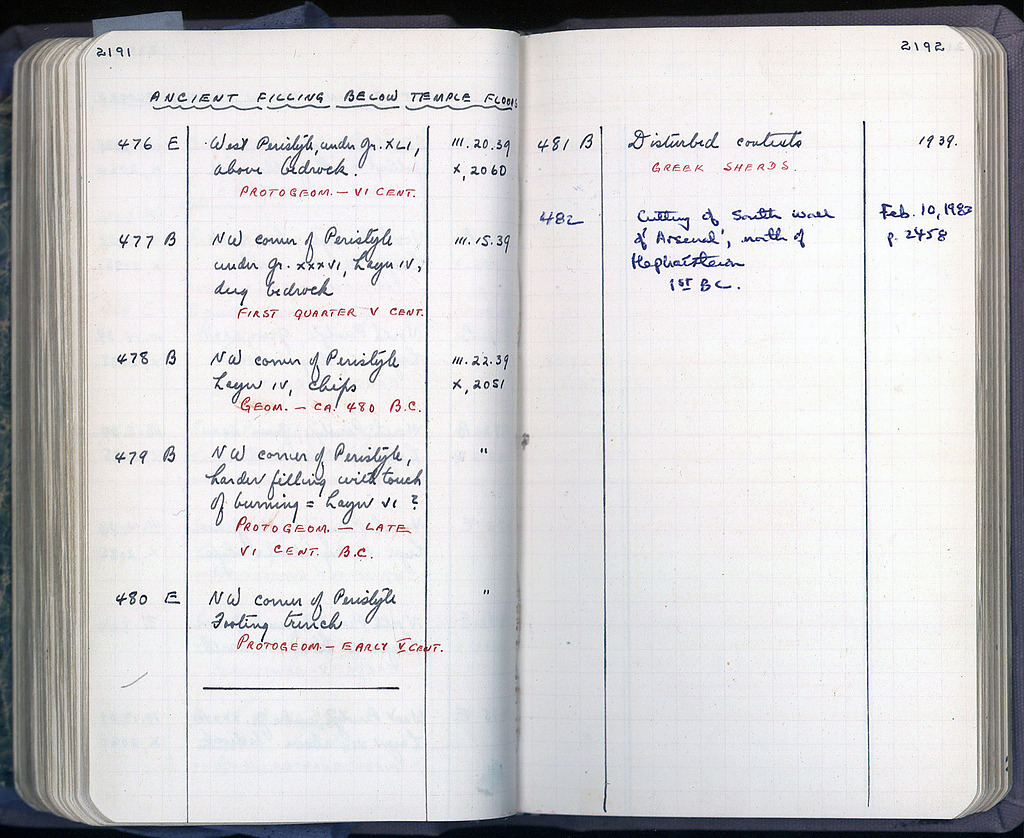 2191
ANCIENT FILLING BELOW TEMPLE FLOOR
476 E West Peristyle, under gr. XLI, III.20.39
above bedrock. X, 2060
PROTOGEOM. — VI CENT.
477 B NW corner of Peristyle III.15.39
under gr. XXXVI, Layer IV,
deep bedrock
FIRST QUARTER V CENT.
478 B NW corner of Peristyle III.22.39
Layer IV, chips X, 2051
GEOM. — CA. 480 B.C.
479 B NW corner of Peristyle, "
harder filling with touch
of burning = Layer VI ?
PROTOGEOM. — LATE
VI CENT. B.C.
480 E NW corner of Peristyle "
Footing trench
PROTOGEOM. — EARLY V CENT.
2192
481 B Disturbed contexts 1939.
GREEK SHERDS.
482 Cutting of South wall Feb. 10, 1982
of 'Arsenal', north of p. 2458
Hephaisteion
1ST BC.